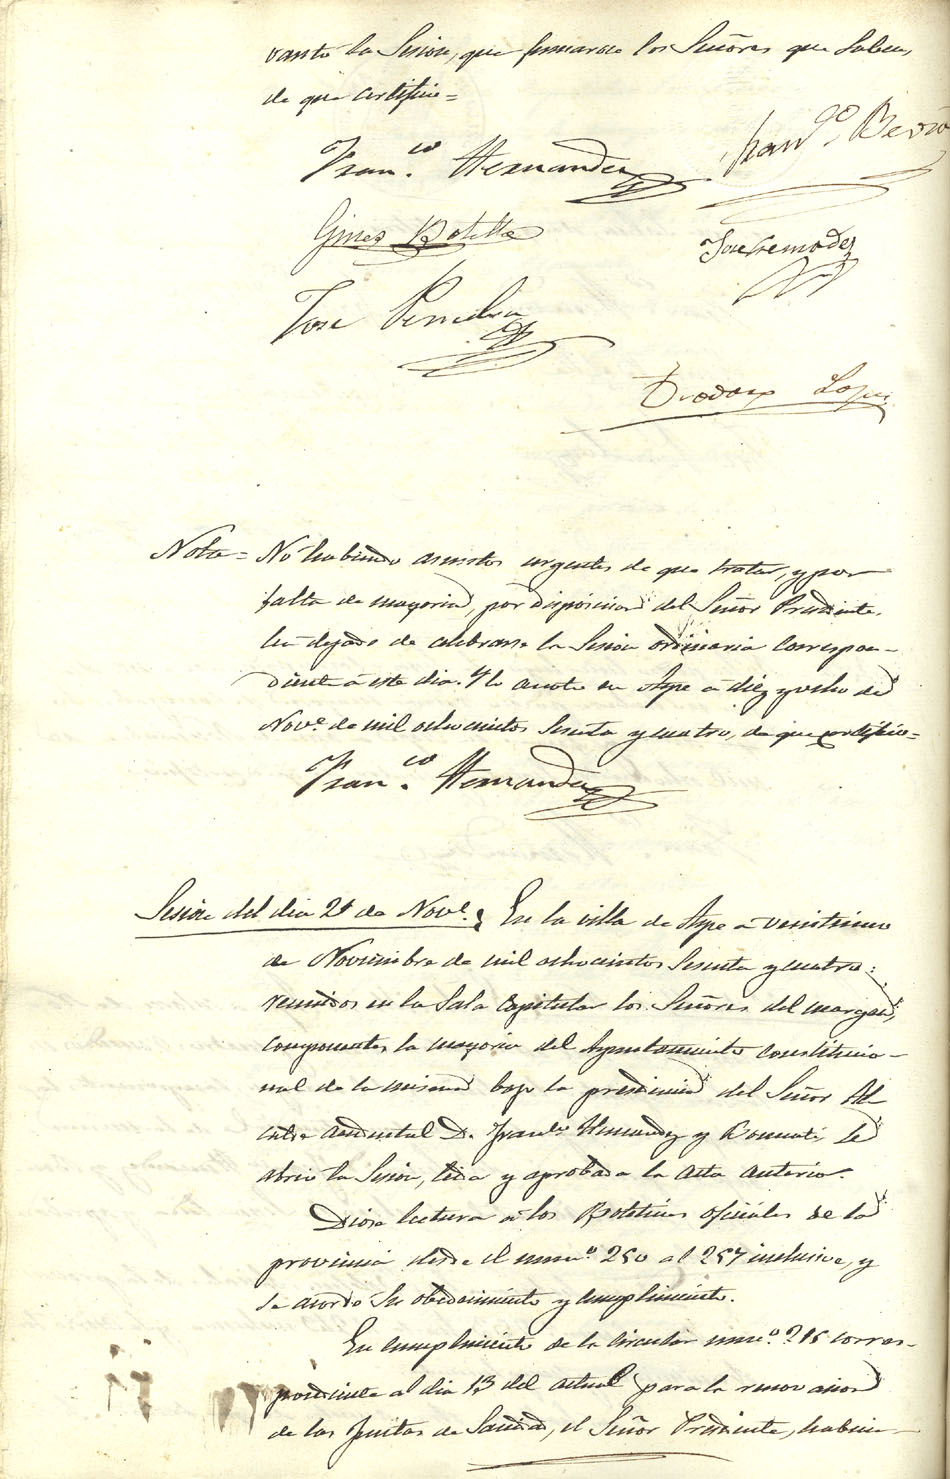 vantó la Sesion, que firmaron los Señores que Saben,
de que certifico=
Fran.co Hernandez
Fran.co Bevia
Gines Botella
Jose Cremades
Jose
Teodoro Lopez
Nota= No habiendo asuntos urgentes de que tratar, y por
falta de mayoria, por disposicion del Señor Presidente,
ha dejado de celebrarse la Sesion ordinaria correspon-
diente á este dia. Y lo anoto en Aspe á diez y ocho de
Nov.e de mil ochocientos Sesenta y cuatro, de que certifico=
Fran.co Hernandez
Sesion del dia 21 de Nov.e En la villa de Aspe á veintiuno
de Noviembre de mil ochocientos Sesenta y cuatro:
reunidos en la Sala Capitular los Señores del margen,
componentes la mayoria del Ayuntamiento constitucio-
nal de la misma bajo la presidencia del Señor Al
calde accidental D. Fran.co Hernandez y Bonmati, Se
abrio la Sesion, leida y aprobada la acta anterior.
Diose lectura á los Boletines oficiales de la
provincia desde el num.o 250 al 257 inclusive, y
se acordó Su obedecimiento y cumplimiento.
En cumplimiento de la circular num.o corres-
pondiente al dia 13 del actual para la renovacion
de las Juntas de Sanidad, el Señor Presidente, habien-